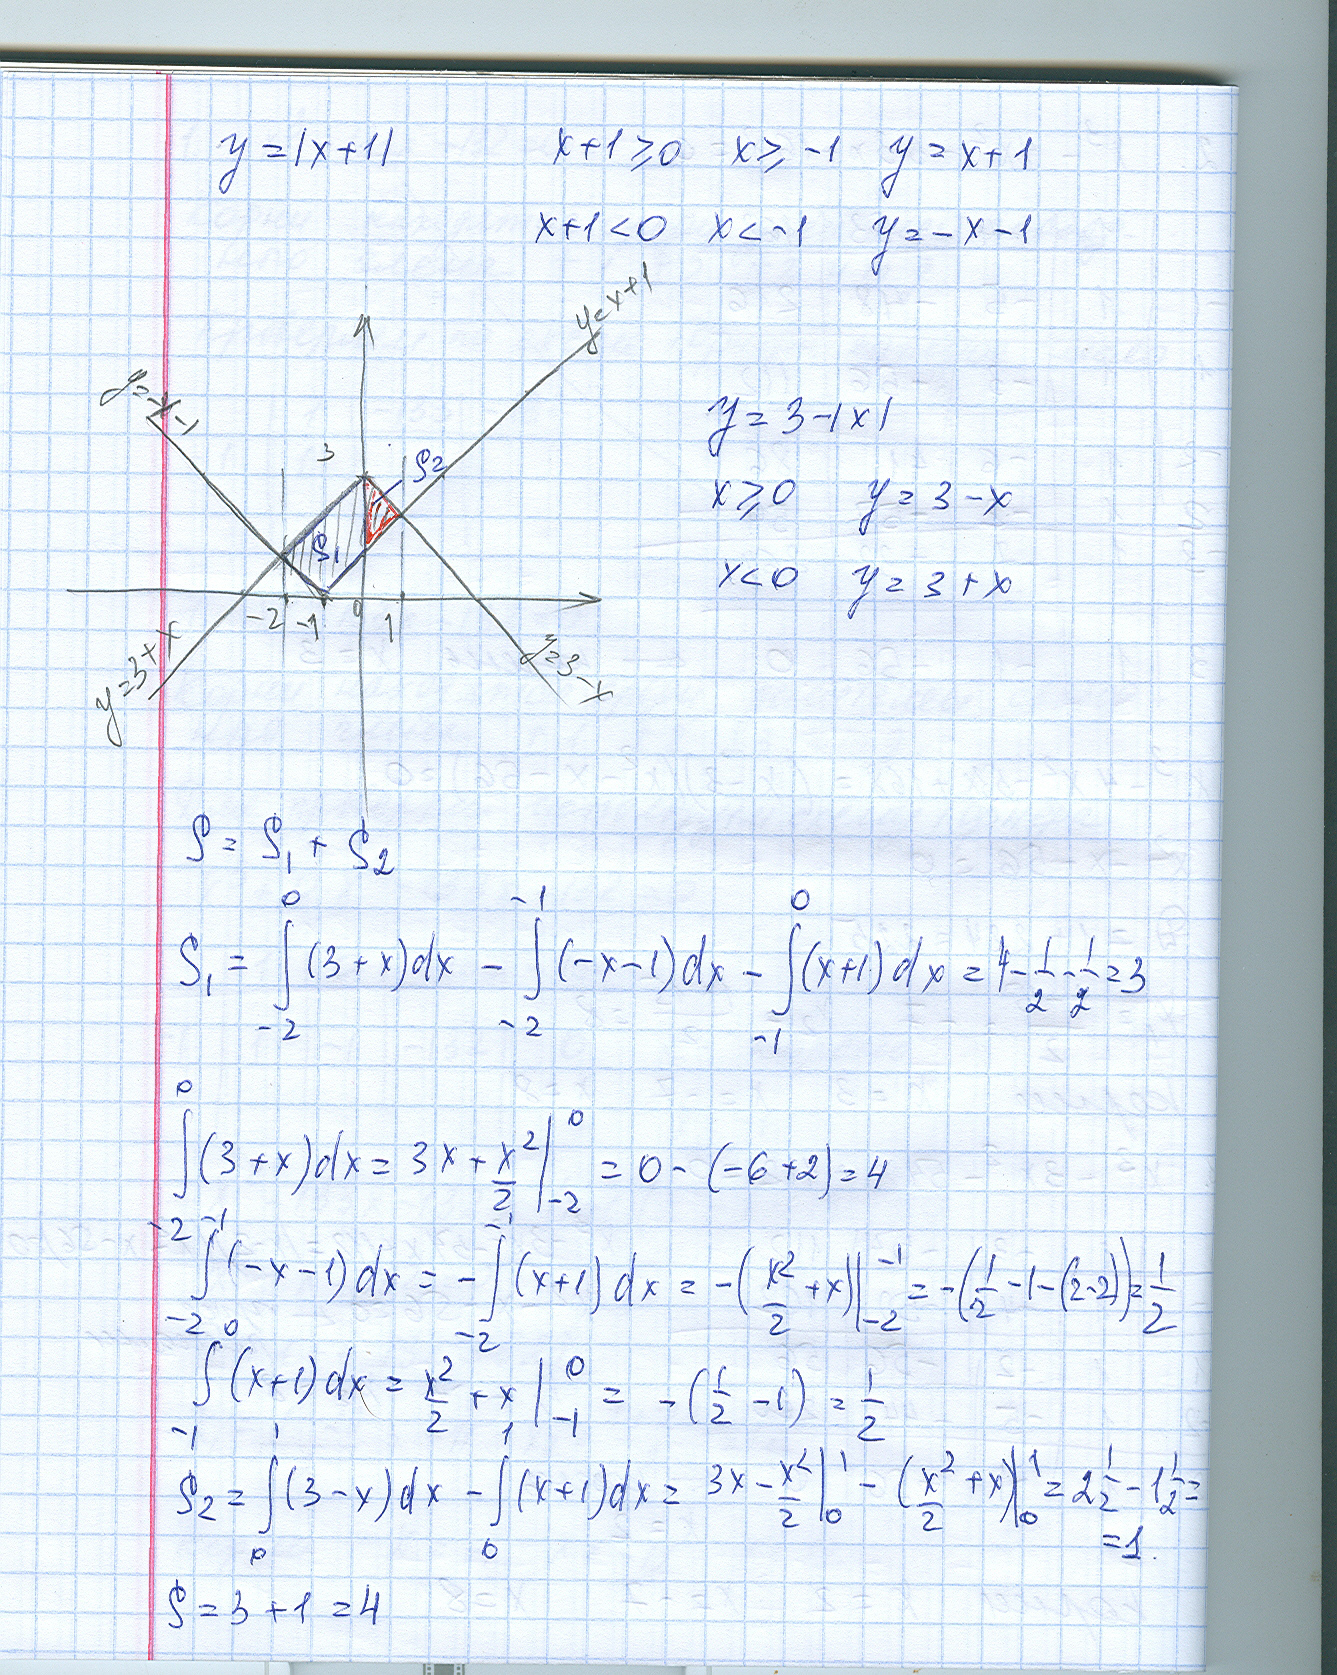 y = |x+1|   x+1 ≥ 0   x ≥ -1   y = x+1
x+1 < 0   x < -1   y = -x-1
y = x+1
y = -x-1
y = 3-|x|
3
S2
x ≥ 0   y = 3-x
S1
x < 0   y = 3+x
-2 -1 0 1
y = 3+x
y = 3-x
S = S1 + S2
S1 = ∫_{-2}^{0} (3+x)dx - ∫_{-2}^{-1} (-x-1)dx - ∫_{-1}^{0} (x+1)dx = 4 - 1/2 - 1/2 = 3
∫_{-2}^{0} (3+x)dx = 3x + x²/2 |_{-2}^{0} = 0 - (-6+2) = 4
∫_{-2}^{-1} (-x-1)dx = -∫_{-2}^{-1} (x+1)dx = -(x²/2 + x)|_{-2}^{-1} = -(1/2 - 1 - (2-2)) = 1/2
∫_{-1}^{0} (x+1)dx = x²/2 + x |_{-1}^{0} = -(1/2 - 1) = 1/2
S2 = ∫_{0}^{1} (3-x)dx - ∫_{0}^{1} (x+1)dx = 3x - x²/2 |_{0}^{1} - (x²/2 + x)|_{0}^{1} = 2 1/2 - 1 1/2 =
= 1.
S = 3 + 1 = 4